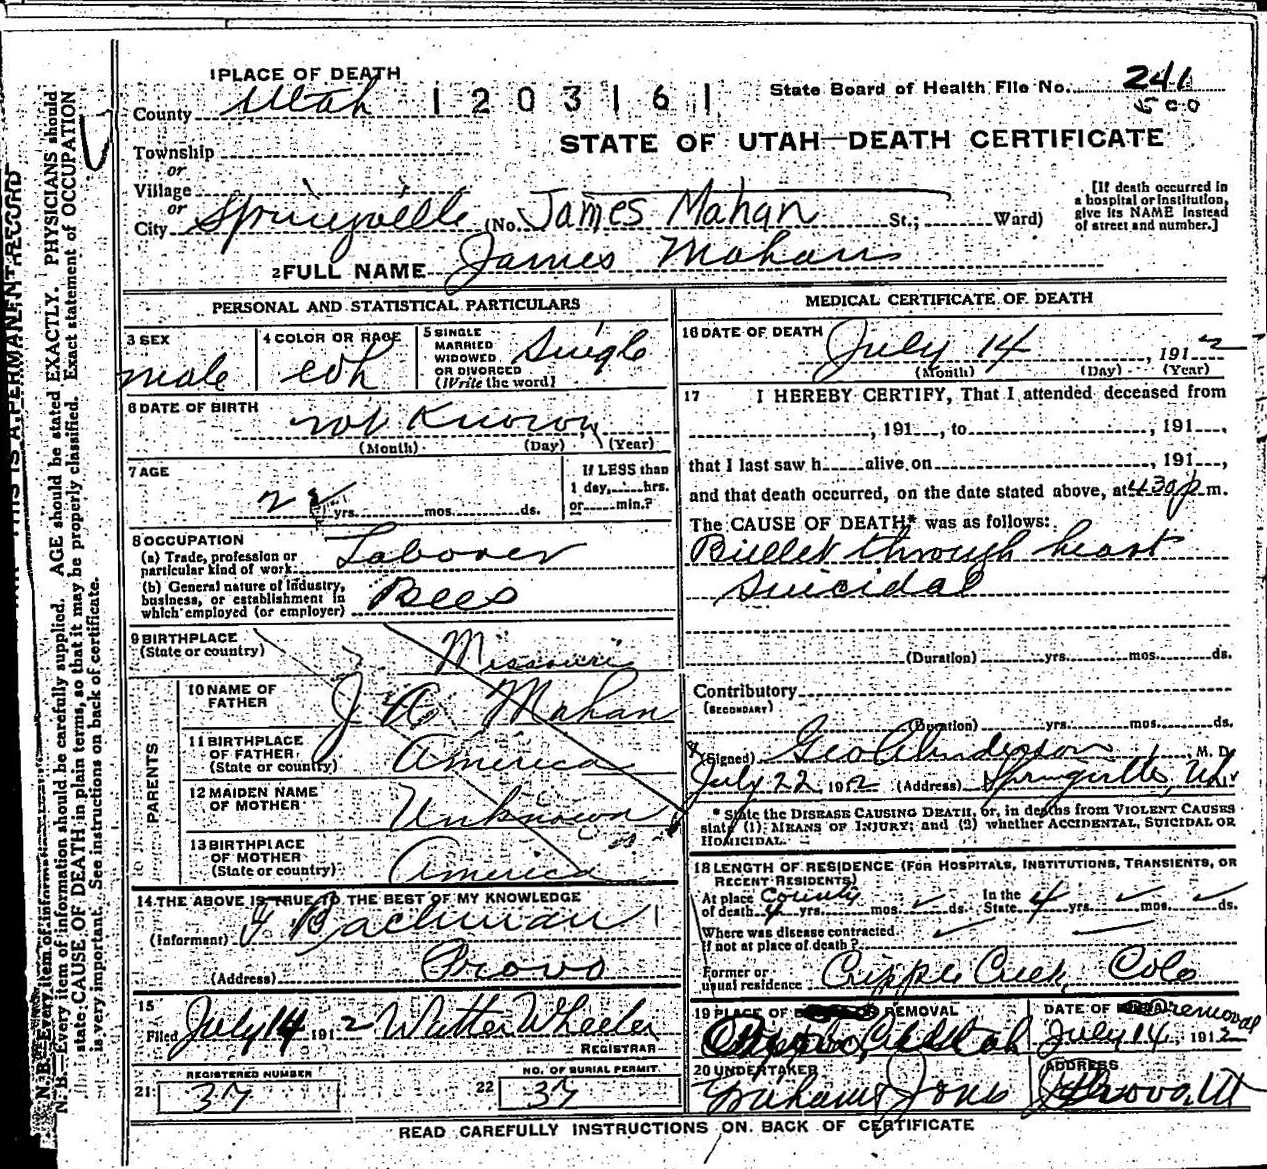 1 PLACE OF DEATH
County Utah 1203161 State Board of Health File No. 241
500
Township
or
STATE OF UTAH—DEATH CERTIFICATE
Village
or
City Springville (No. James Mahan St.; Ward)
[If death occurred in
a hospital or institution,
give its NAME instead
of street and number.]
2 FULL NAME James Mahan
PERSONAL AND STATISTICAL PARTICULARS
3 SEX
male
4 COLOR OR RACE
wh
5 SINGLE
MARRIED
WIDOWED
OR DIVORCED
(Write the word)
Single
6 DATE OF BIRTH
not Known
(Month) (Day) (Year)
7 AGE
yrs. mos. ds.
If LESS than
1 day, hrs.
or min.?
8 OCCUPATION
(a) Trade, profession or
particular kind of work Laborer
(b) General nature of industry,
business, or establishment in
which employed (or employer) Bees
9 BIRTHPLACE
(State or country) Missouri
PARENTS
10 NAME OF
FATHER J A Mahan
11 BIRTHPLACE
OF FATHER
(State or country) America
12 MAIDEN NAME
OF MOTHER Unknown
13 BIRTHPLACE
OF MOTHER
(State or country) America
14 THE ABOVE IS TRUE TO THE BEST OF MY KNOWLEDGE
(Informant) Bachman
(Address) Provo
15
Filed July 14 1912 Walter Wheeler
REGISTRAR
REGISTERED NUMBER
21 37
NO. OF BURIAL PERMIT
22 37
MEDICAL CERTIFICATE OF DEATH
16 DATE OF DEATH July 14, 1912
(Month) (Day) (Year)
17 I HEREBY CERTIFY, That I attended deceased from
, 191 , to , 191 ,
that I last saw h alive on , 191 ,
and that death occurred, on the date stated above, at 430 p m.
The CAUSE OF DEATH* was as follows:
Bullet through heart
Suicidal
(Duration) yrs. mos. ds.
Contributory
(SECONDARY)
(Duration) yrs. mos. ds.
(Signed) Geo Anderson M. D.
July 22 1912 (Address) Springville, Ut.
* State the DISEASE CAUSING DEATH, or, in deaths from VIOLENT CAUSES
state (1) MEANS OF INJURY; and (2) whether ACCIDENTAL, SUICIDAL OR
HOMICIDAL.
18 LENGTH OF RESIDENCE (FOR HOSPITALS, INSTITUTIONS, TRANSIENTS, OR
RECENT RESIDENTS)
At place County In the
of death 4 yrs. mos. ds. State 4 yrs. mos. ds.
Where was disease contracted
if not at place of death?
Former or
usual residence Cripple Creek, Colo
19 PLACE OF REMOVAL
DATE OF removal
July 14, 1912
20 UNDERTAKER
Graham Jones
ADDRESS
Provo, Ut
READ CAREFULLY INSTRUCTIONS ON BACK OF CERTIFICATE
THIS IS A PERMANENT RECORD
N. B.—Every item of information should be carefully supplied. AGE should be stated EXACTLY. PHYSICIANS should
state CAUSE OF DEATH in plain terms, so that it may be properly classified. Exact statement of OCCUPATION
is very important. See instructions on back of certificate.